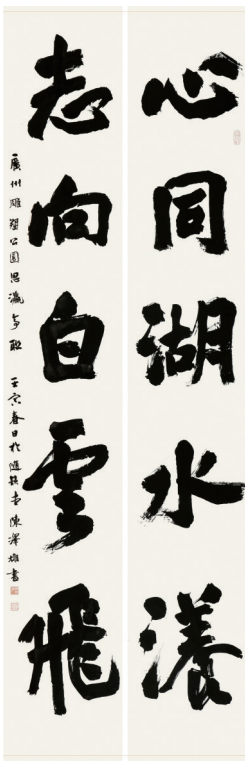 心同湖水漾
志向白雲飛
廣州雕塑公園思瀛亭聯 壬寅春日於
陳澤雄書